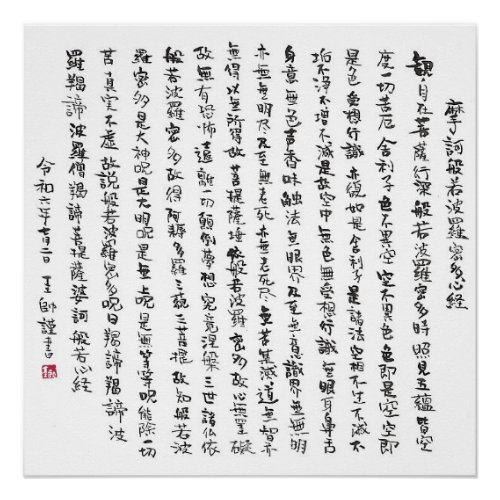 摩訶般若波羅密多心経
観自在菩薩行深般若波羅密多時照見五蘊皆空
度一切苦厄舎利子色不異空空不異色色即是空空即
是色受想行識亦復如是舎利子是諸法空相不生不滅不
垢不浄不増不減是故空中無色無受想行識無眼耳鼻舌
身意無色声香味触法無眼界乃至無意識界無無明
亦無無明尽乃至無老死亦無老死尽無苦集滅道無智亦
無得以無所得故菩提薩埵依般若波羅密多故心無罣礙
故無有恐怖遠離一切顛倒夢想究竟涅槃三世諸仏依
般若波羅密多故得阿耨多羅三藐三菩提故知般若波
羅密多是大神呪是大明呪是無上呪是無等等呪能除一切
苦真実不虚故説般若波羅密多呪曰羯諦羯諦波
羅羯諦波羅僧羯諦菩提薩婆訶般若心経
令和六年七月二日 謹書